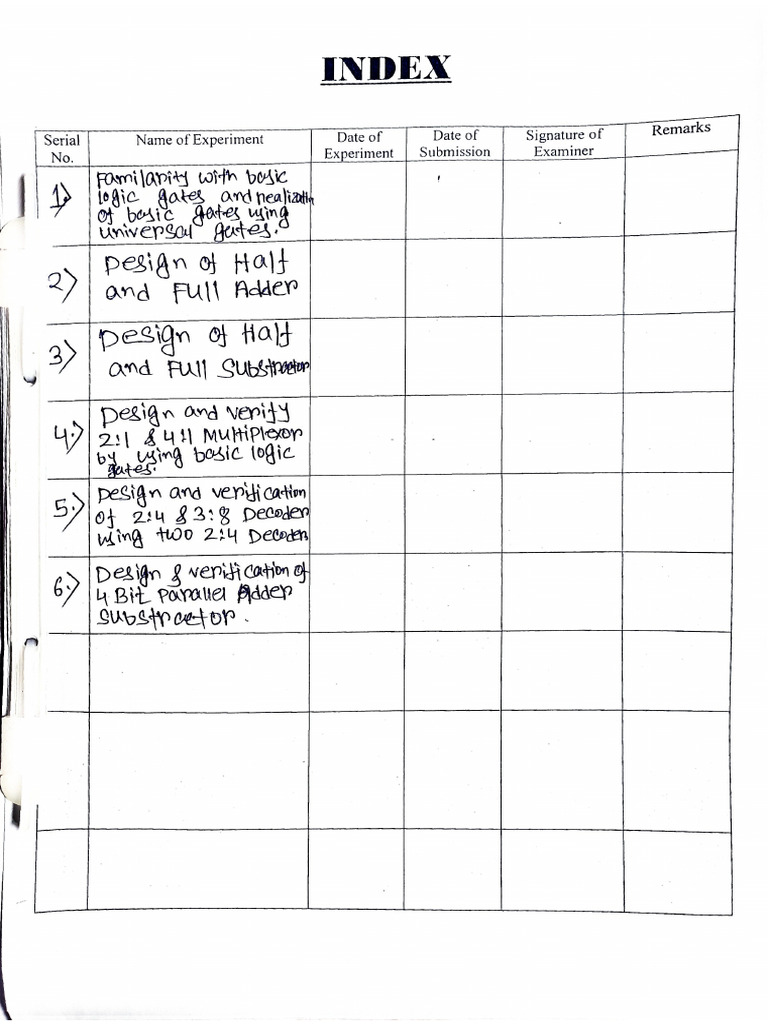 INDEX
Serial No.
Name of Experiment
Date of Experiment
Date of Submission
Signature of Examiner
Remarks
1.)
Familarity with basic
logic gates and realization
of basic gates using
universal gates.
2)
Design of Half
and Full Adder
3)
Design of Half
and Full Substractor
4.)
Design and verify
2:1 & 4:1 Multiplexor
by using basic logic
gates.
5.)
Design and verification
of 2:4 & 3:8 Decoder
using two 2:4 Decoder
6.)
Design & verification of
4 Bit Parallel Adder
Substractor.